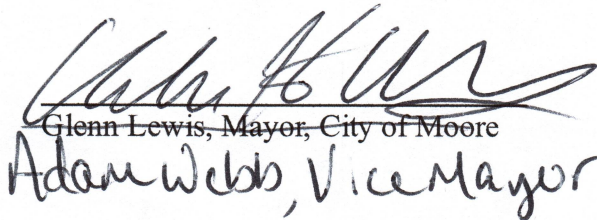 Glenn Lewis, Mayor, City of Moore
Adam Webb, Vice Mayor